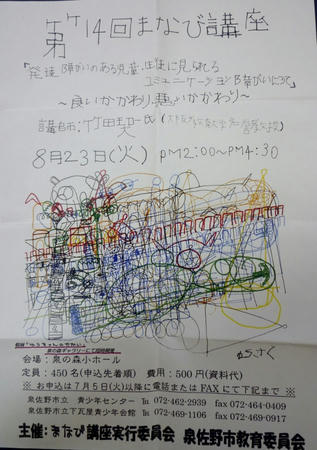 第14回まなび講座
「発達障がいのある児童・生徒に見られる
コミュニケーション障がいについて」
～良いかかわり、悪いかかわり～
講師：竹田契一氏（大阪教育大学名誉教授）
8月23日(火) PM2:00～PM4:30
ゆうさく
泉の森ギャラリーにて同時開催
会場：泉の森小ホール
定員：450名(申込先着順) 費用：500円(資料代)
※お申込は7月5日(火)以降に電話またはFAXにて下記まで※
泉佐野市立 青少年センター Tel 072-462-2939 fax 072-464-0409
泉佐野市立下瓦屋青少年会館 Tel 072-469-1106 fax 072-469-0917
主催：まなび講座実行委員会 泉佐野市教育委員会